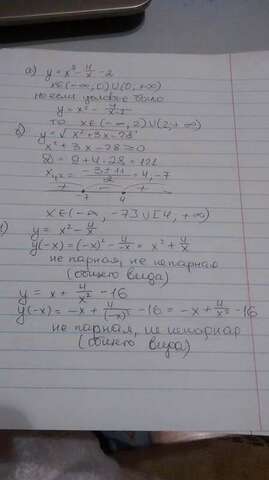 а) y = x² - 4/x - 2
x∈(-∞, 0)∪(0, +∞)
но если условие было
y = x² - 4/x-2
то x∈(-∞, 2)∪(2, +∞)
б) y = √x² + 3x - 28
x² + 3x - 28 ≥ 0
D = 9 + 4·28 = 121
x₁,₂ = -3±11/2 = 4, -7
+ - +
-7 4
x∈(-∞, -7]∪[4, +∞)
y = x² - 4/x
y(-x) = (-x)² - 4/-x = x² + 4/x
не парная, не непарная
(общего вида)
y = x + 4/x² - 16
y(-x) = -x + 4/(-x)² - 16 = -x + 4/x² - 16
не парная, не непарная
(общего вида)